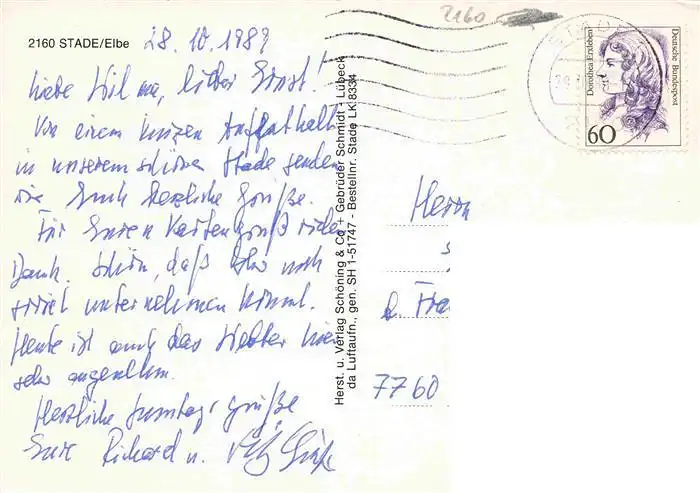 2160 STADE/Elbe 28.10.1989
Liebe Hilma, lieber Ernst!
Von einem kurzen Aufenthalt
in unserem schönen Stade senden
wir Euch herzliche Grüße.
Für Euren Kartengruß vielen
Dank. Schön, daß Ihr noch
soviel unternehmen könnt.
Heute ist auch das Wetter hier
sehr angenehm.
Herzliche Sonntagsgrüße
Eure Richard u.
Herst. u. Verlag Schöning & Co + Gebrüder Schmidt - Lübeck
da Luftaufn., gen. SH 1-51747 - Bestellnr. Stade LK 8334
2160
STADE
Dorothea Erxleben
Deutsche Bundespost
60
Herrn
7760